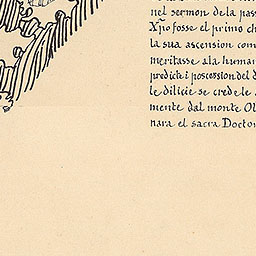 nel sermon de la pas
Xp̄o fosse el primo ch
la sua ascension com
meritasse a la human
predicte i poscession del d
le dilicie se crede le
mente dal monte Ol
nara el sacra Doctor